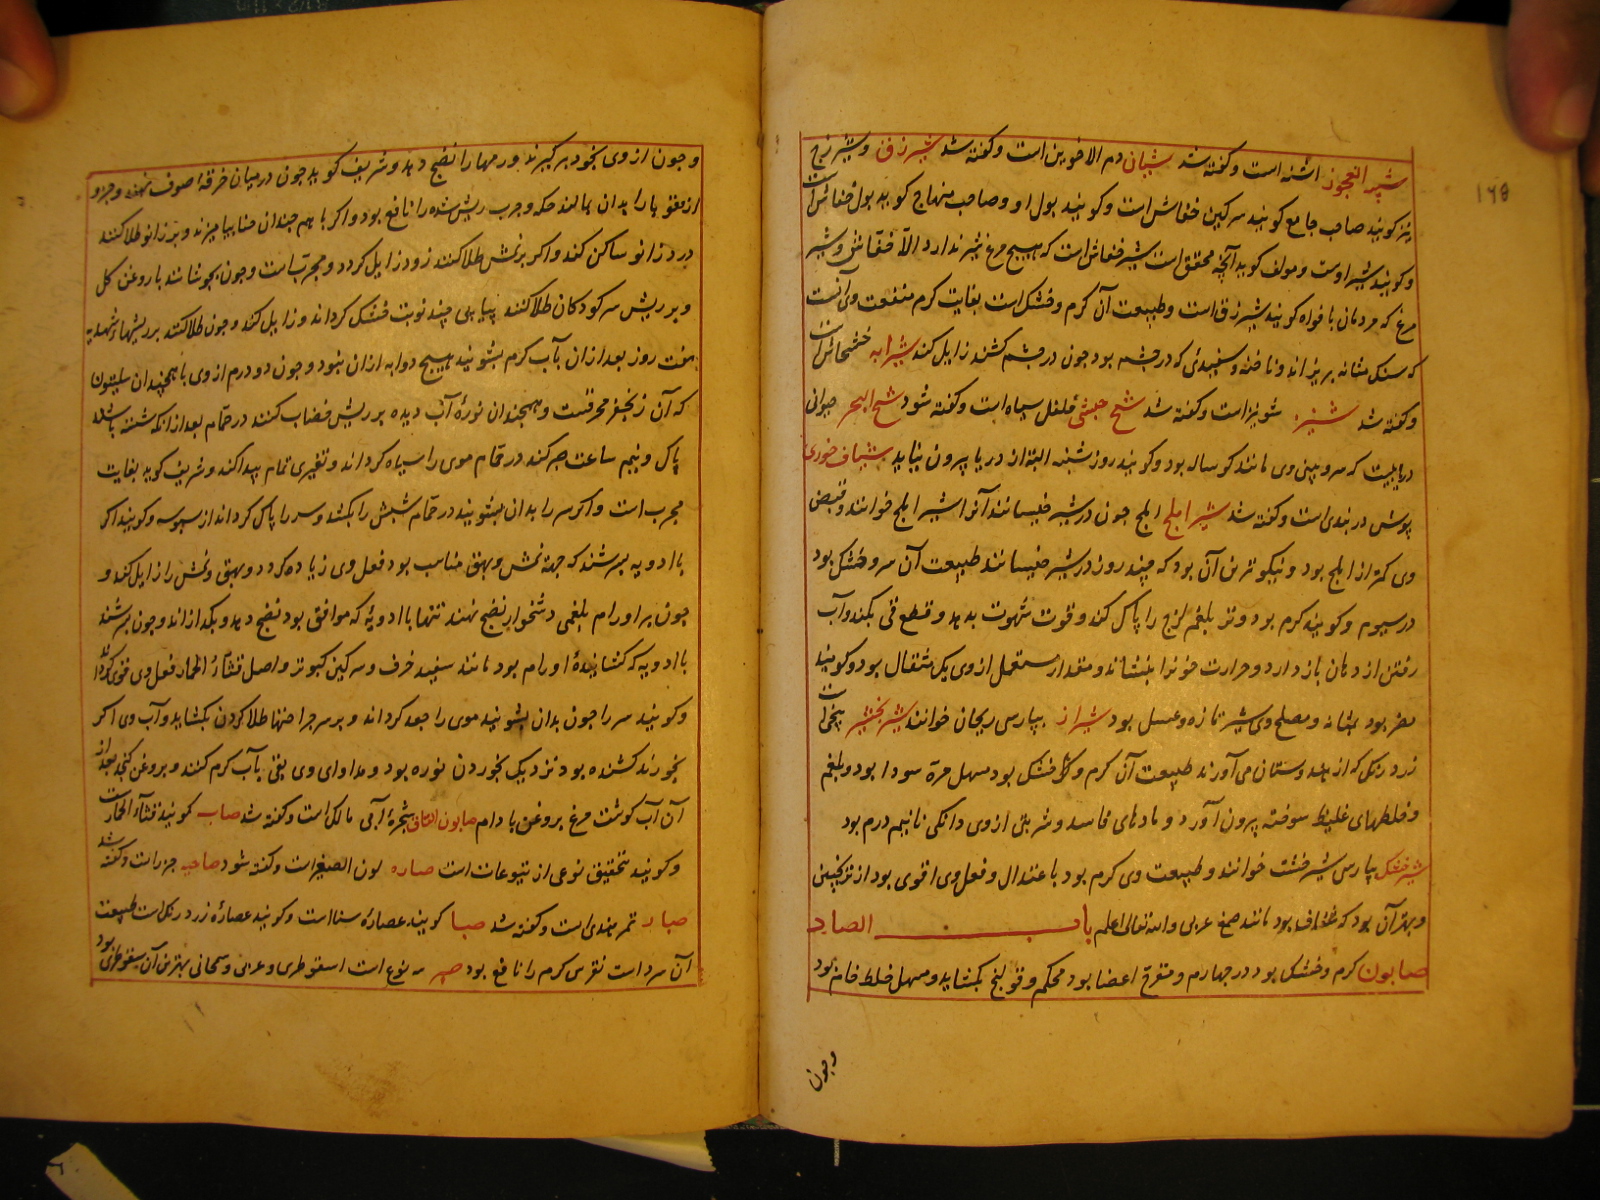 شیبة العجوز اشنه است و گفته شد شیان دم الاخوین است و گفته شد شیرزق و شیرزج
نیز گویند صاحب جامع گوید سرکین خفاش است و گویند بول او و صاحب منهاج گوید بول خفاش است
و گویند شیر اوست و مولف گوید آنچه محقق است شیر خفاش است که هیچ مرغ شیر ندارد الا خفاش و شیر
مرغ که مردمان بافواه گویند شیرزق است و طبیعت آن کرم و خشک است بغایت کرم منفعت وی آنست
که سنک مثانه بریزاند و ناخنه و سفیدی که در چشم بود چون در چشم کشند زایل کند شیرابه خشخاش است
و گفته شد شینیز شونیز است و گفته شد شخ حبشی فلفل سیاه است و گفته شود شیخ البحر حیوانی
دریاییست که سر و بینی وی مانند کوساله بود و گویند روز شنبه البته از دریا بیرون نیاید شیاف خوزی
پوش دربندی است و گفته شد شیر املج املج چون در شیر خیسانند آنرا شیر املج خوانند و قبض
وی کمتر از املج بود و نیکوترین آن بود که چند روز در شیر خیسانند طبیعت آن سرد و خشک بود
در سیوم و گویند کرم بود و تر بلغم لزج را پاک کند و قوت شهوت بدهد و قطع قی بکند و آب
رفتن از دهان باز دارد و حرارت خونرا بنشاند و مقدار مستعمل از وی یک مثقال بود و گویند
مضر بود بمثانه و مصلح وی شیر تازه و عسل بود شیراز بپارسی ریحان خوانند شیر بخشیر بیخی است
زرد رنک که از هندوستان می آورند طبیعت آن کرم و خشک بود مسهل مرة سودا بود و بلغم
و خلطهای غلیظ سوخته بیرون آورد و مادهای فاسد و شربتی از وی دانکی تا نیم درم بود
شیر خشک بپارسی شیر خشت خوانند و طبیعت وی کرم بود با عتدال و فعل وی اقوی بود از ترنجبین
و بهتر آن بود که شفاف بود مانند صمغ عربی والله تعالی اعلم باب الصاد
صابون کرم و خشک بود در چهارم و مقرح اعضا بود محکم و قولنج بکشاید و مسهل خلط خام بود
و چون
و چون از وی بخود برگیرند ورمها را نضج دهد و شریف گوید چون در میان خرقه صوف نهند و جزو
درد زانو ساکن کند و اکر بر نمش طلا کنند زود زایل کردد و مجرب است و چون بجوشانند با روغن کل
و بر ریش سر کودکان طلا کنند پیاپی چند نوبت خشک کرداند و زایل کند و چون طلا کنند بر ریشهاء شهدیه
هفت روز بعد از ان بآب کرم بشویند هیچ دوا به از ان نبود و چون دو درم از وی با همچندان سلیقون
که آن زنجفر محرقست و همچندان نورهٔ آب دیده بر ریش خضاب کنند در حمام بعد از آنکه شسته باشند
پاک و نیم ساعت صبر کند در حمام موی را سیاه کرداند و تغییری تمام پیدا کند و شریف گوید بغایت
مجرب است و اکر سر را بدان بشویند در حمام شپش را بکشد و سر را پاک کرداند از سبوسه و گویند اکر
با ادویه بسرشند که جهت نمش و بهق مناسب بود فعل وی زیاده کردد و بهق و نمش را زایل کند و
چون بر اورام بلغمی دشخوار نضج نهند تنها با ادویهٔ که موافق بود نضج دهد و بکدازاند و چون بسرشند
با ادویه که کشایندهٔ اورام بود مانند سفید خرف و سرکین کبوتر و اصل قثاء الحمار فعل وی قوی کرداند
و گویند سر را چون بدان بشویند موی را جعد کرداند و بر سر جراحتها طلا کردن بکشاید و آب وی اکر
بخورند کشنده بود نزدیک بخوردن نوره بود و مداوای وی بقی بآب کرم کنند و بروغن کنجد بعد از
آن آب کوشت مرغ بروغن بادام صابون القاق شجرهٔ ابی مالک است و گفته شد صاب گویند قثاء الحمار است
و گویند بتحقیق نوعی از یتوعات است صاره لوف الصغیر است و گفته شود صاحیه جزر است و گفته شد
صبار تمر هندی است و گفته شد صبا گویند عصارهٔ سنا است و گویند عصارهٔ زرد رنک است طبیعت
آن سرد است نقرس کرم را نافع بود صبر سه نوع است اسقوطری و عربی و سمجانی بهترین آن سقوطری بود